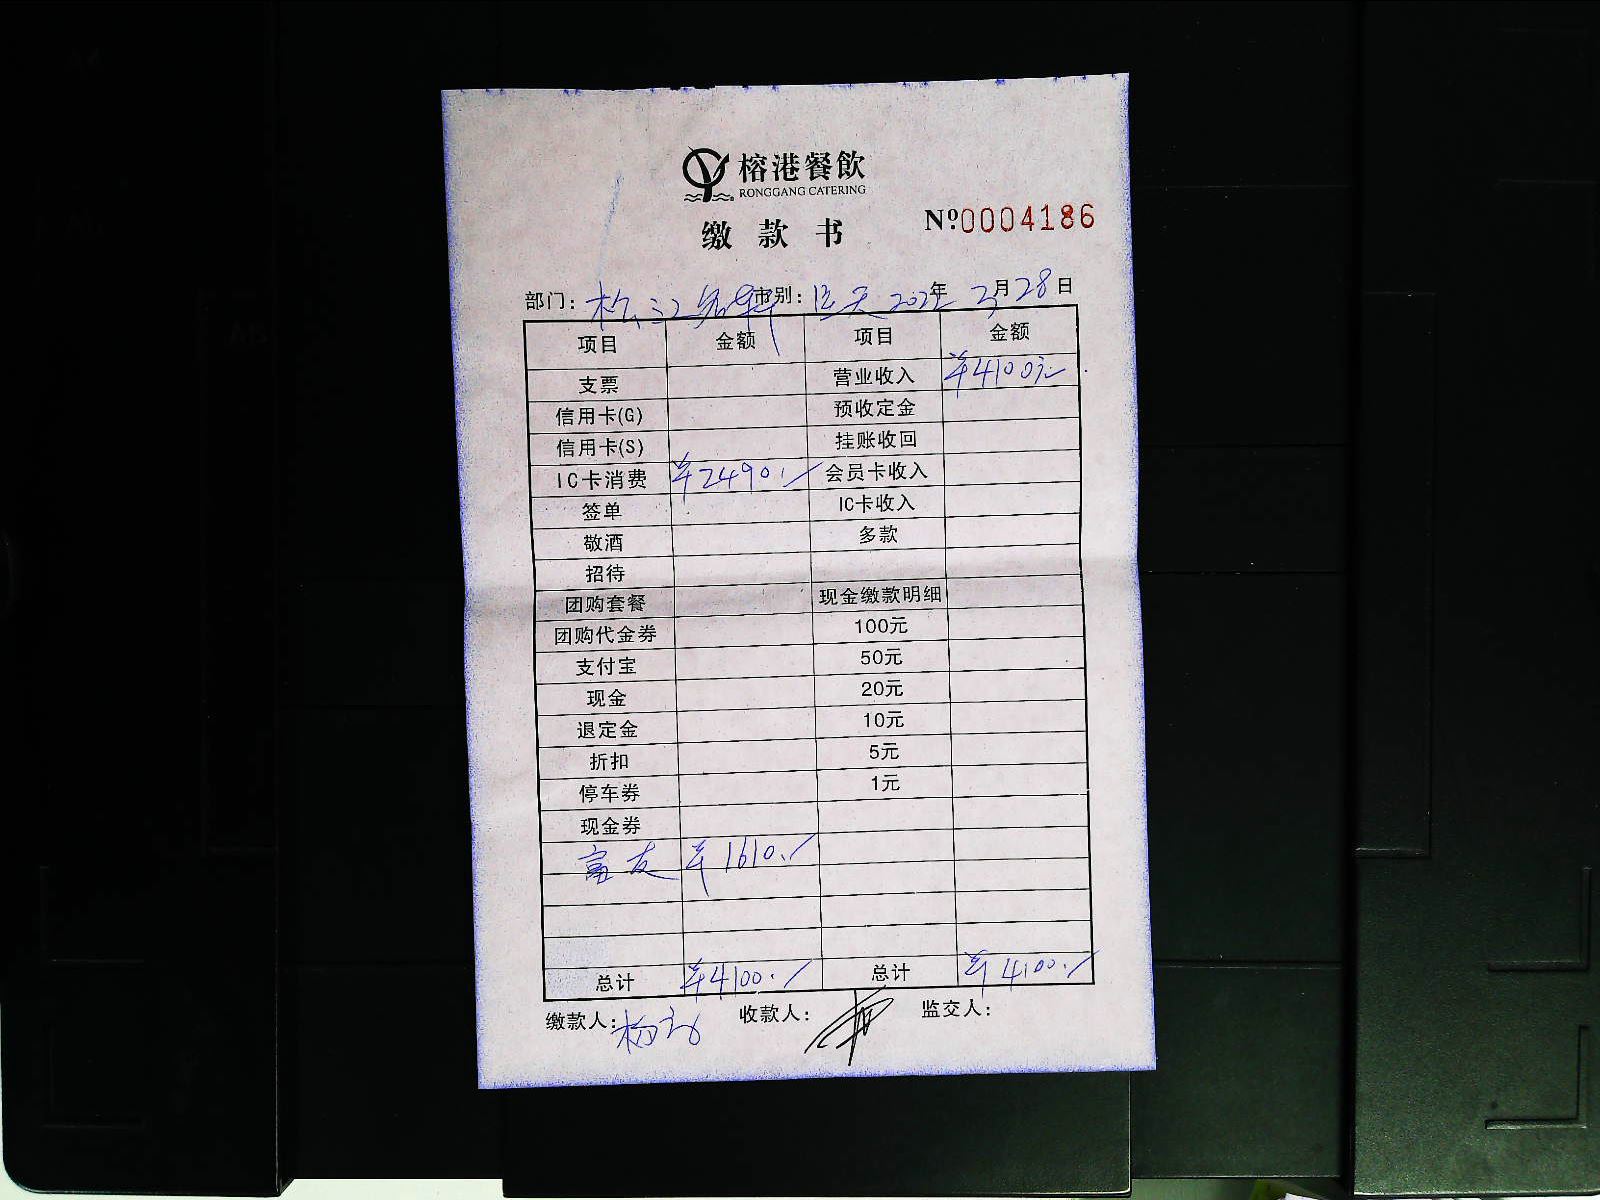 榕港餐飲
RONGGANG CATERING
缴款书 Nº:0004186
部门: 松江名轩 市别: 全天 2022年 3月28日
项目 金额 项目 金额
支票 营业收入 ¥4100元
信用卡(G) 预收定金
信用卡(S) 挂账收回
IC卡消费 ¥2490.- 会员卡收入
签单 IC卡收入
敬酒 多款
招待
团购套餐 现金缴款明细
团购代金券 100元
支付宝 50元
现金 20元
退定金 10元
折扣 5元
停车券 1元
现金券
富友 ¥1610.-
总计 ¥4100.- 总计 ¥4100.-
缴款人: 收款人: 监交人: